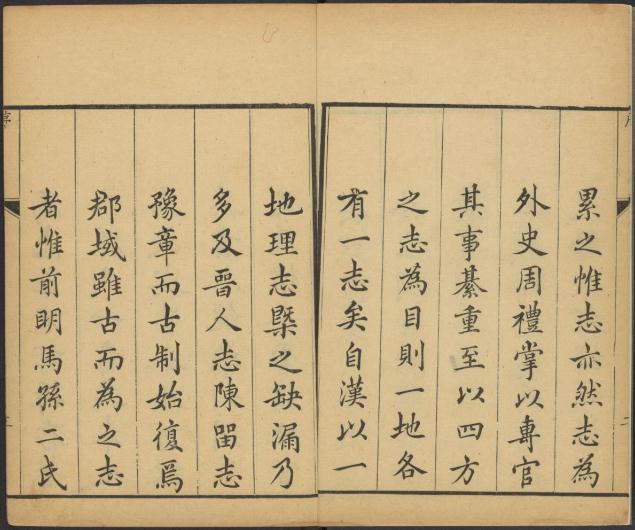 累之惟志亦然志為
外史周禮掌以專官
其事綦重至以四方
之志為目則一地各
有一志矣自漢以一
地理志槩之缺漏乃
多及晉人志陳留志
豫章而古制始復焉
郡域雖古而為之志
者惟前明馬孫二氏